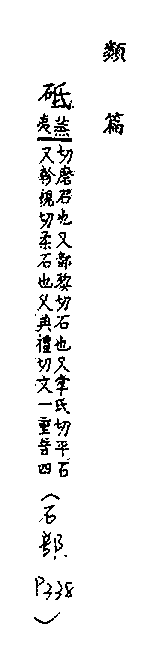 類篇
砥
蒸夷切磨石也又詵黎切石也又掌氏切平石
又軫視切柔石也又典禮切文一重音四
(石部 P338)